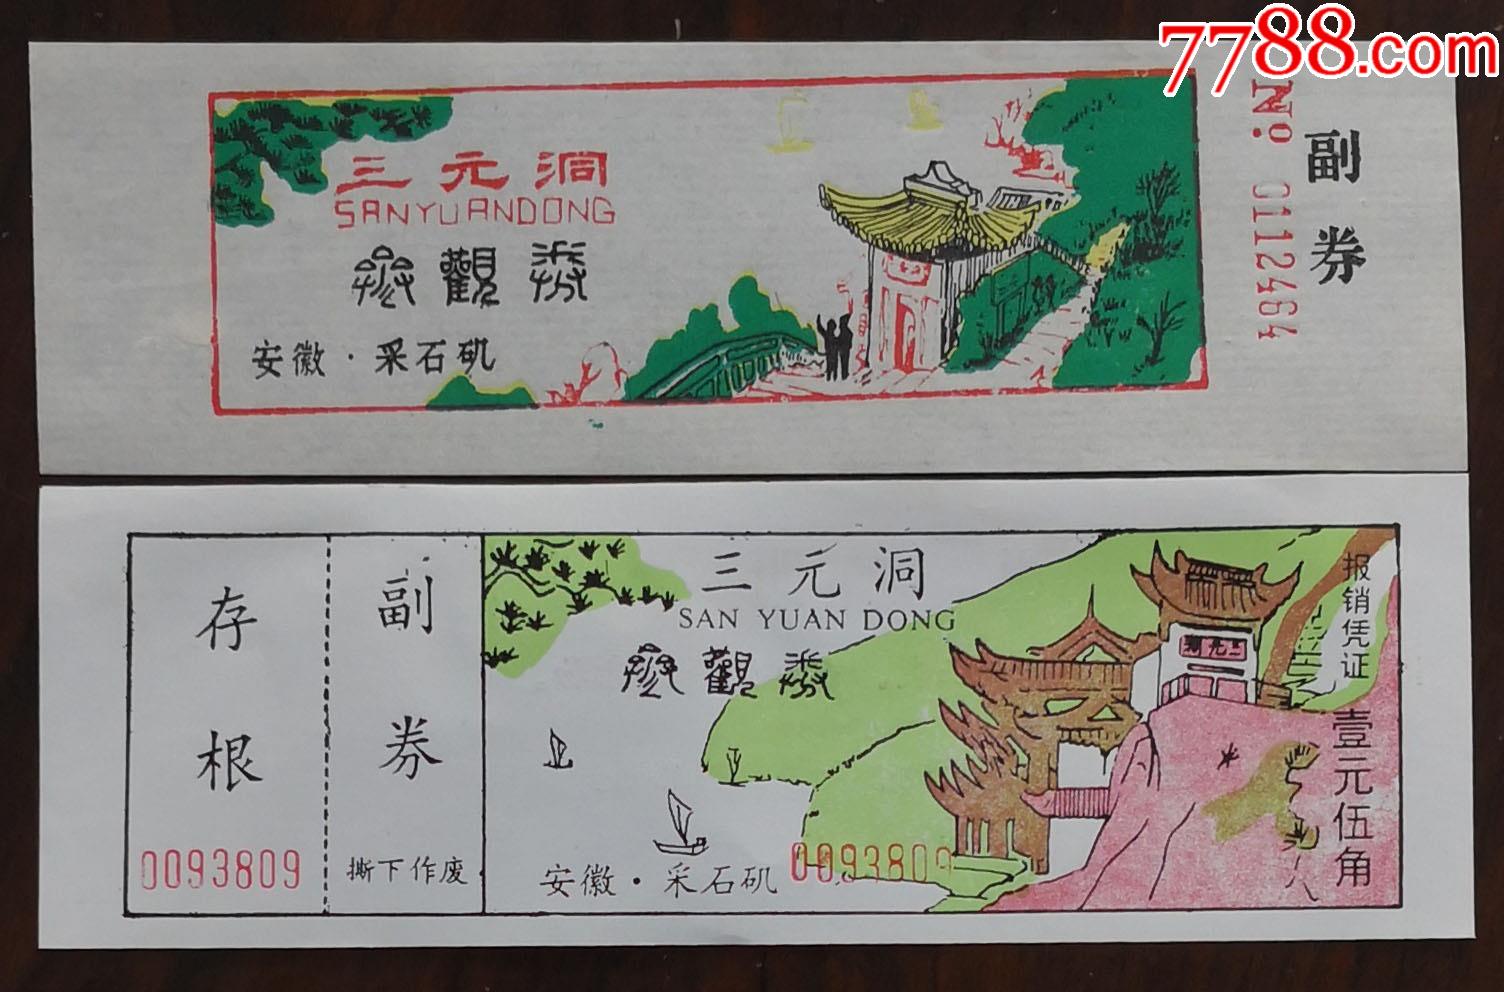 7788.com
三元洞
SANYUANDONG
参觀券
安徽·采石矶
副券
No: 0112464
存根
0093809
副券
撕下作废
三元洞
SAN YUAN DONG
参觀券
安徽·采石矶
0093809
三元洞
报销凭证
壹元伍角